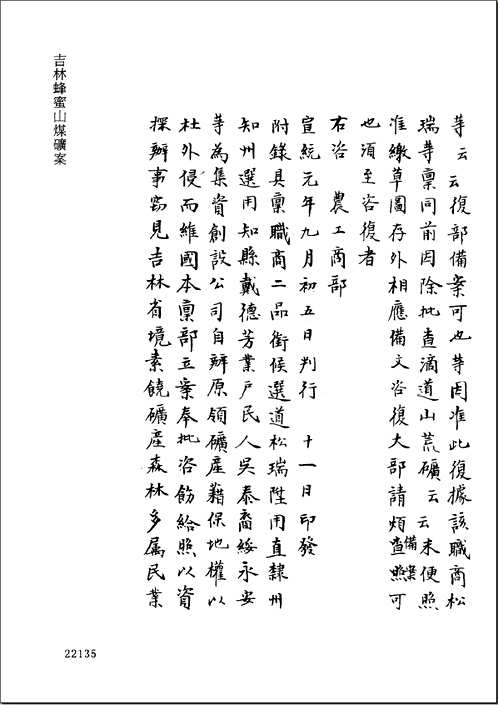 等云云復部備案可也等因准此復據該職商松
瑞等稟同前因除批查滴道山荒礦云云未便照
准繳草圖存外相應備文咨復大部請煩查照備案可
也須至咨復者
右咨　農工商部
宣統元年九月初五日判行　十一日印發
附錄具稟職商二品銜候選道松瑞陞用直隸州
知州選用知縣戴德芳業戶民人吳泰裔綏永安
等為集資創設公司自辦原領礦產藉保地權以
杜外侵而維國本稟部立案奉批咨飭給照以資
採辦事竊見吉林省境素饒礦產森林多屬民業
吉林蜂蜜山煤礦案
22135